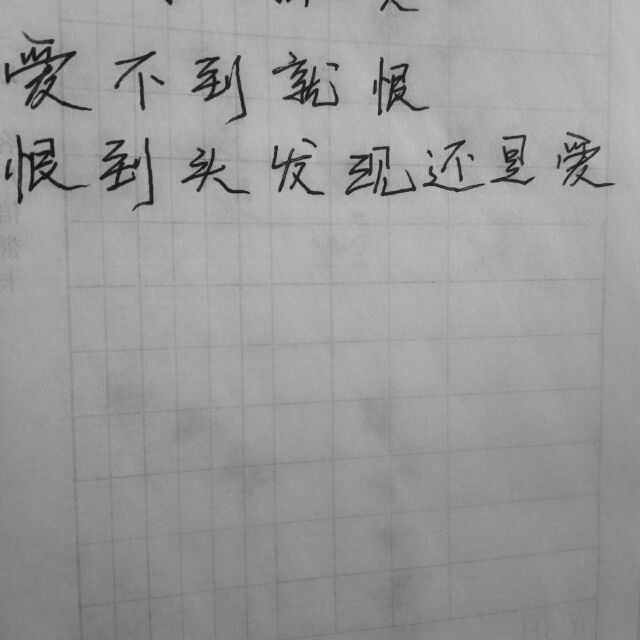 爱不到就恨
恨到头发现还是爱